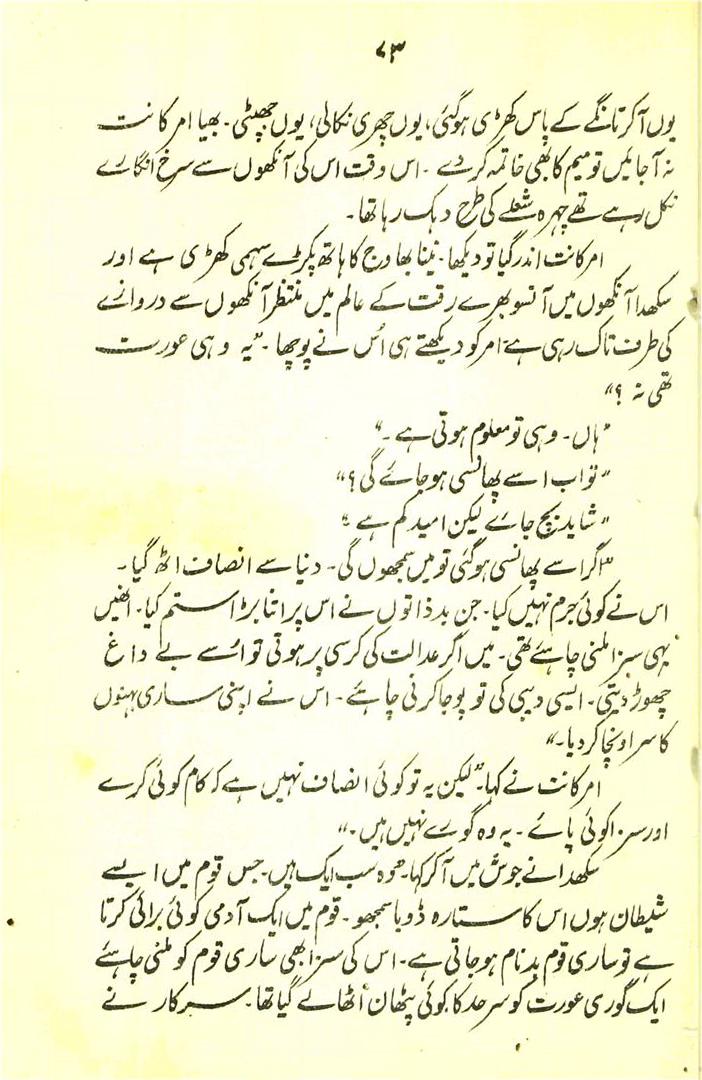 ۷۳
یوں آکر تانگے کے پاس کھڑی ہوگئی، یوں چھری نکالی، یوں جھپٹی۔ بھیا امرکانت
نہ آجائیں تو میم کا بھی خاتمہ کردے۔ اس وقت اس کی آنکھوں سے سرخ انگارے
نکل رہے تھے چہرہ شعلے کی طرح دہک رہا تھا۔
امرکانت اندر گیا تو دیکھا۔ نینا بھاوج کا ہاتھ پکڑے سہمی کھڑی ہے اور
سکھدا آنکھوں میں آنسو بھرے رقت کے عالم میں منتظر آنکھوں سے دروازے
کی طرف تاک رہی ہے۔ امر کو دیکھتے ہی اُس نے پوچھا۔ "یہ وہی عورت
تھی نہ ؟"
"ہاں۔ وہی تو معلوم ہوتی ہے۔"
"تو اب اسے پھانسی ہوجائے گی؟"
"شاید بچ جائے لیکن امید کم ہے"
"اگر اسے پھانسی ہوگئی تو میں سمجھوں گی۔ دنیا سے انصاف اٹھ گیا۔
اس نے کوئی جرم نہیں کیا۔ جن بدذاتوں نے اس پر اتنا بڑا ستم کیا۔ انھیں
یہی سزا ملنی چاہئے تھی۔ میں اگر عدالت کی کرسی پر ہوتی تو اسے بے داغ
چھوڑ دیتی۔ ایسی دیبی کی تو پوجا کرنی چاہئے۔ اس نے اپنی ساری بہنوں
کا سر اونچا کردیا۔"
امرکانت نے کہا۔ "لیکن یہ تو کوئی انصاف نہیں ہے کہ کام کوئی کرے
اور سزا کوئی پائے۔ یہ وہ گورے نہیں ہیں۔"
سکھدا نے جوش میں آکر کہا۔ "وہ سب ایک ہیں۔ جس قوم میں ایسے
شیطان ہوں اس کا ستارہ ڈوبا سمجھو۔ قوم میں ایک آدمی کوئی برائی کرتا
ہے تو ساری قوم بدنام ہوجاتی ہے۔ اس کی سزا بھی ساری قوم کو ملنی چاہئے
ایک گوری عورت کو سرحد کا کوئی پٹھان اُٹھالے گیا تھا۔ سرکار نے